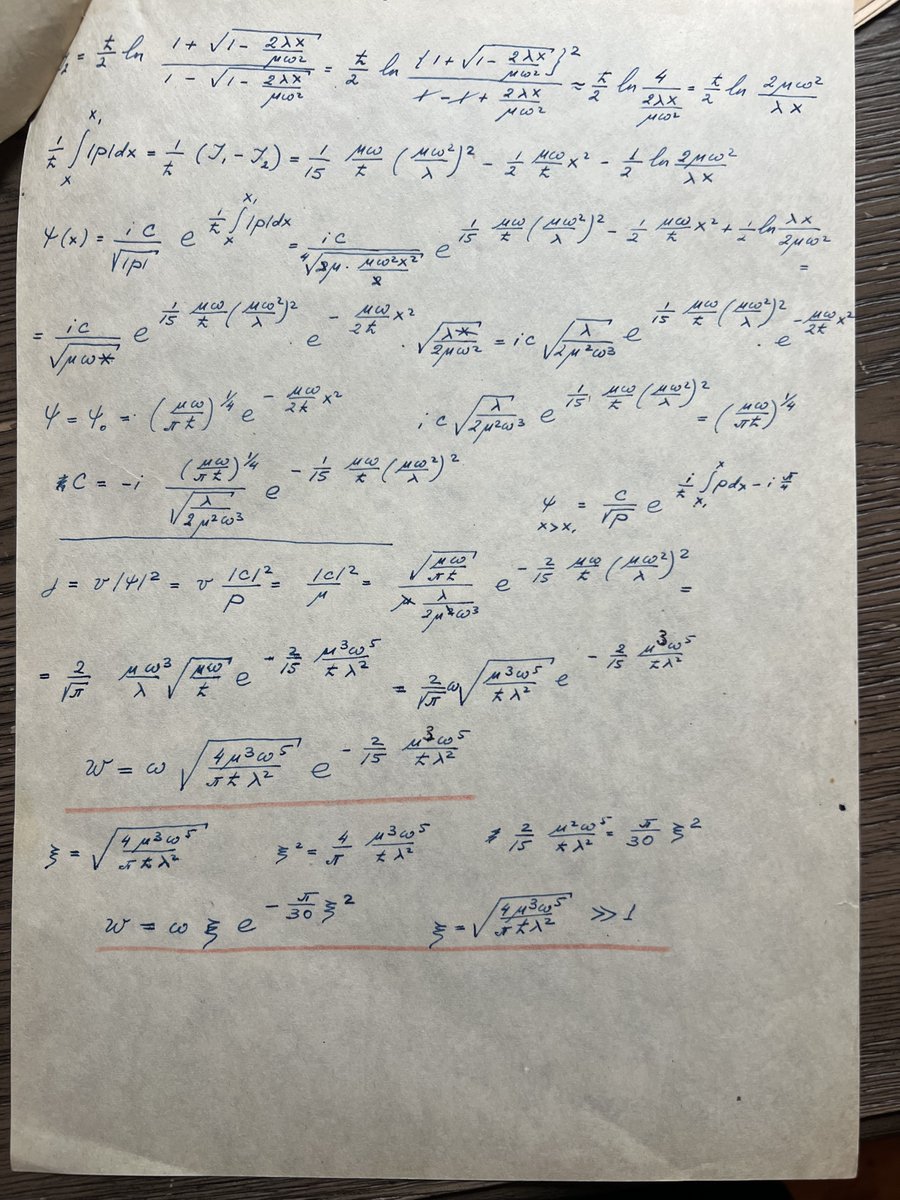 ₂ = ħ/2 ln (1 + √(1 − 2λx/μω²))/(1 − √(1 − 2λx/μω²)) = ħ/2 ln {1 + √(1 − 2λx/μω²)}²/(1 − 1 + 2λx/μω²) ≈ ħ/2 ln 4/(2λx/μω²) = ħ/2 ln 2μω²/λx
1/ħ ∫ₓ^x₁ |p|dx = 1/ħ (J₁ − J₂) = 1/15 μω/ħ (μω²/λ)² − 1/2 μω/ħ x² − 1/2 ln 2μω²/λx
Ψ(x) = iC/√|p| e^(1/ħ ∫ₓ^x₁ |p|dx) = iC/⁴√(2μ · μω²x²/2) e^(1/15 μω/ħ (μω²/λ)² − 1/2 μω/ħ x² + 1/2 ln λx/2μω²) =
= iC/√(μωx) e^(1/15 μω/ħ (μω²/λ)²) · e^(−μω/2ħ x²) · √(λx/2μω²) = iC √(λ/2μ²ω³) e^(1/15 μω/ħ (μω²/λ)²) · e^(−μω/2ħ x²)
Ψ = Ψ₀ = (μω/πħ)^1/4 e^(−μω/2ħ x²) iC √(λ/2μ²ω³) e^(1/15 μω/ħ (μω²/λ)²) = (μω/πħ)^1/4
C = −i (μω/πħ)^1/4/√(λ/2μ²ω³) e^(−1/15 μω/ħ (μω²/λ)²) Ψ x>x₁ = C/√p e^(i/ħ ∫x₁^x pdx − i π/4)
J = v|Ψ|² = v |C|²/p = |C|²/μ = √(μω/πħ)/(μ λ/2μ²ω³) e^(−2/15 μω/ħ (μω²/λ)²) =
= 2/√π μω³/λ √(μω/ħ) e^(−2/15 μ³ω⁵/ħλ²) = 2/√π ω √(μ³ω⁵/ħλ²) e^(−2/15 μ³ω⁵/ħλ²)
W = ω √(4μ³ω⁵/πħλ²) e^(−2/15 μ³ω⁵/ħλ²)
ξ = √(4μ³ω⁵/πħλ²) ξ² = 4/π μ³ω⁵/ħλ² 2/15 μ²ω⁵/ħλ² = π/30 ξ²
W = ω ξ e^(−π/30 ξ²) ξ = √(4μ³ω⁵/πħλ²) ≫ 1